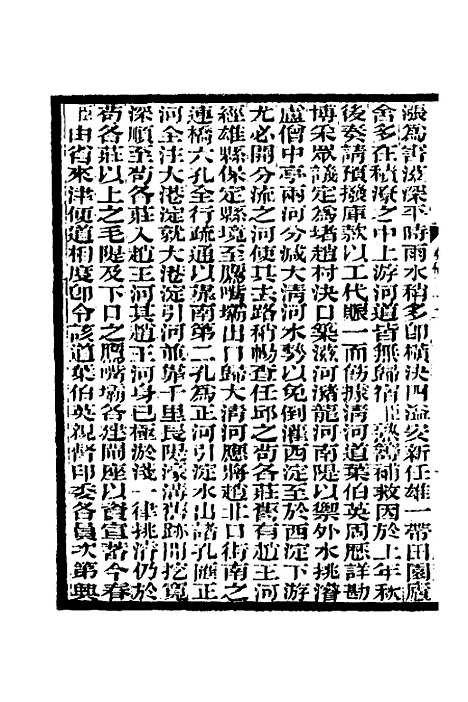 漲為害淺深平時雨水稍多卽橫決四溢安新任雄一帶田園廬
舍多在積潦之中上游河道皆無歸宿亟熟籌補救因於上年秋
後奏請預撥庫款以工代賑一面飭據清河道葉伯英周歷詳勘
博采眾議定為堵趙村決口築瀦河豬龍河南隄以禦外水挑濬
盧僧中亭兩河分減大清河水勢以免倒灌西淀至於西淀下游
尤必開分流之河使其去路稍暢查任邱之茍各莊舊有趙王河
經雄縣保定縣境至鷹嘴壩出口歸大清河應將趙北口街南之
連橋六孔全行疏通以靠南第二孔為正河引淀水出諸孔匯正
河全注大港淀就大港淀引河並靠千里長隄濠溝舊跡開挖寬
深順至茍各莊入趙王河其趙王河身已極淤淺一律挑濬仍於
茍各莊以上之毛隄及下口之鷹嘴壩各建閘座以資宣蓄今春
臣由省來津便道相度卽令該道葉伯英親督印委各員次第興